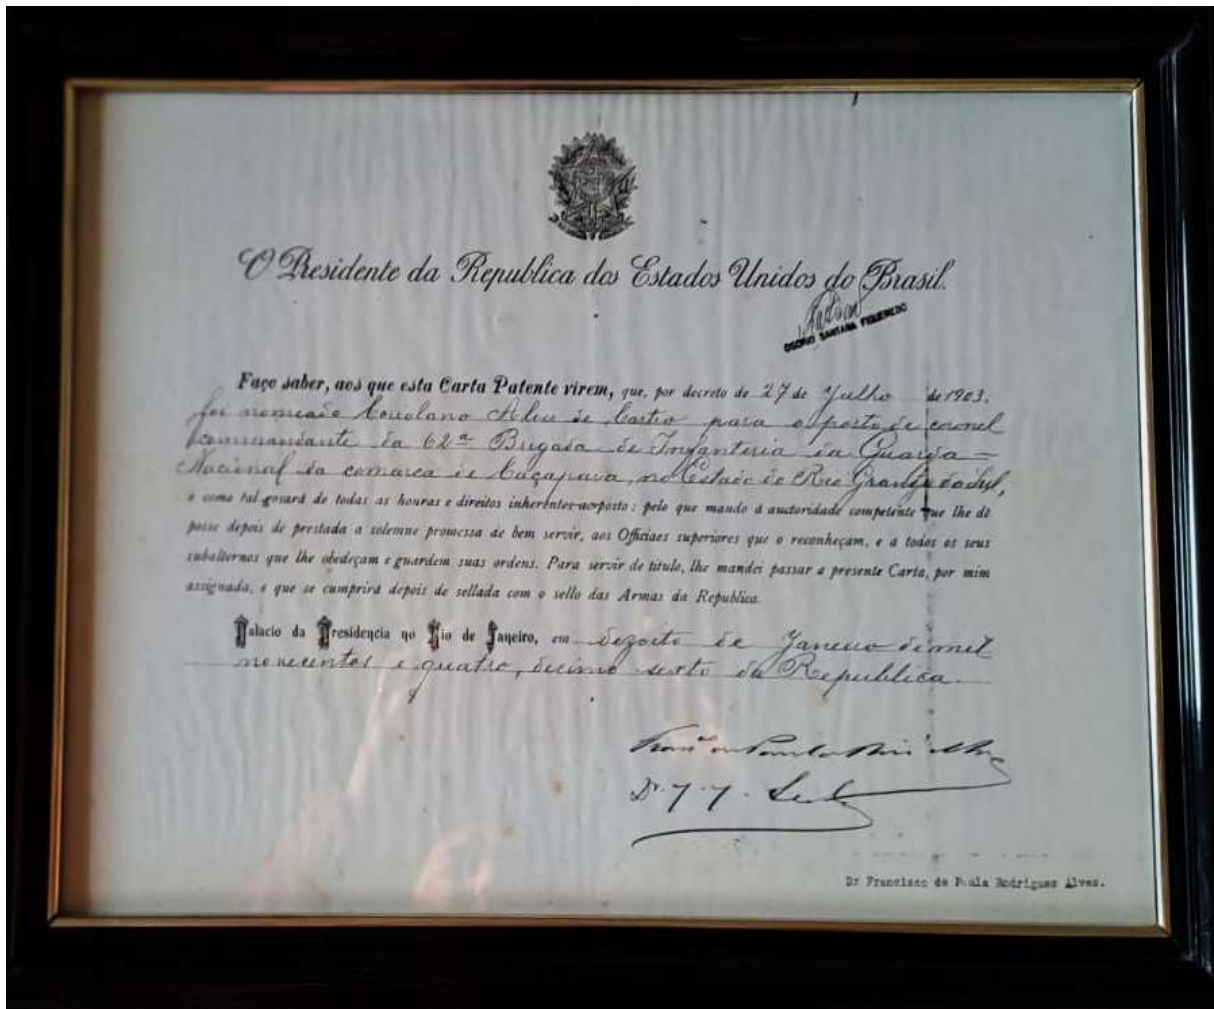 O Presidente da Republica dos Estados Unidos do Brasil.
OSORIO SANTANA FIGUEIREDO
Faço saber, aos que esta Carta Patente virem, que, por decreto de 27 de Julho de 1903,
foi nomeado Coriolano Alves de Castro para o posto de coronel
commandante da 62ª Brigada de Infanteria da Guarda-
Nacional da comarca de Caçapava, no Estado do Rio Grande do Sul,
e como tal gosará de todas as honras e direitos inherentes ao posto; pelo que mando á auctoridade competente que lhe dê
posse depois de prestada a solemne promessa de bem servir, aos Officiaes superiores que o reconheçam, e a todos os seus
subalternos que lhe obedeçam e guardem suas ordens. Para servir de titulo, lhe mandei passar a presente Carta, por mim
assignada, e que se cumprirá depois de sellada com o sello das Armas da Republica.
Palacio da Presidencia no Rio de Janeiro, em dezoito de Janeiro de mil
novecentos e quatro, decimo sexto da Republica.
Dr. J. J.
Dr Francisco de Paula Rodrigues Alves.